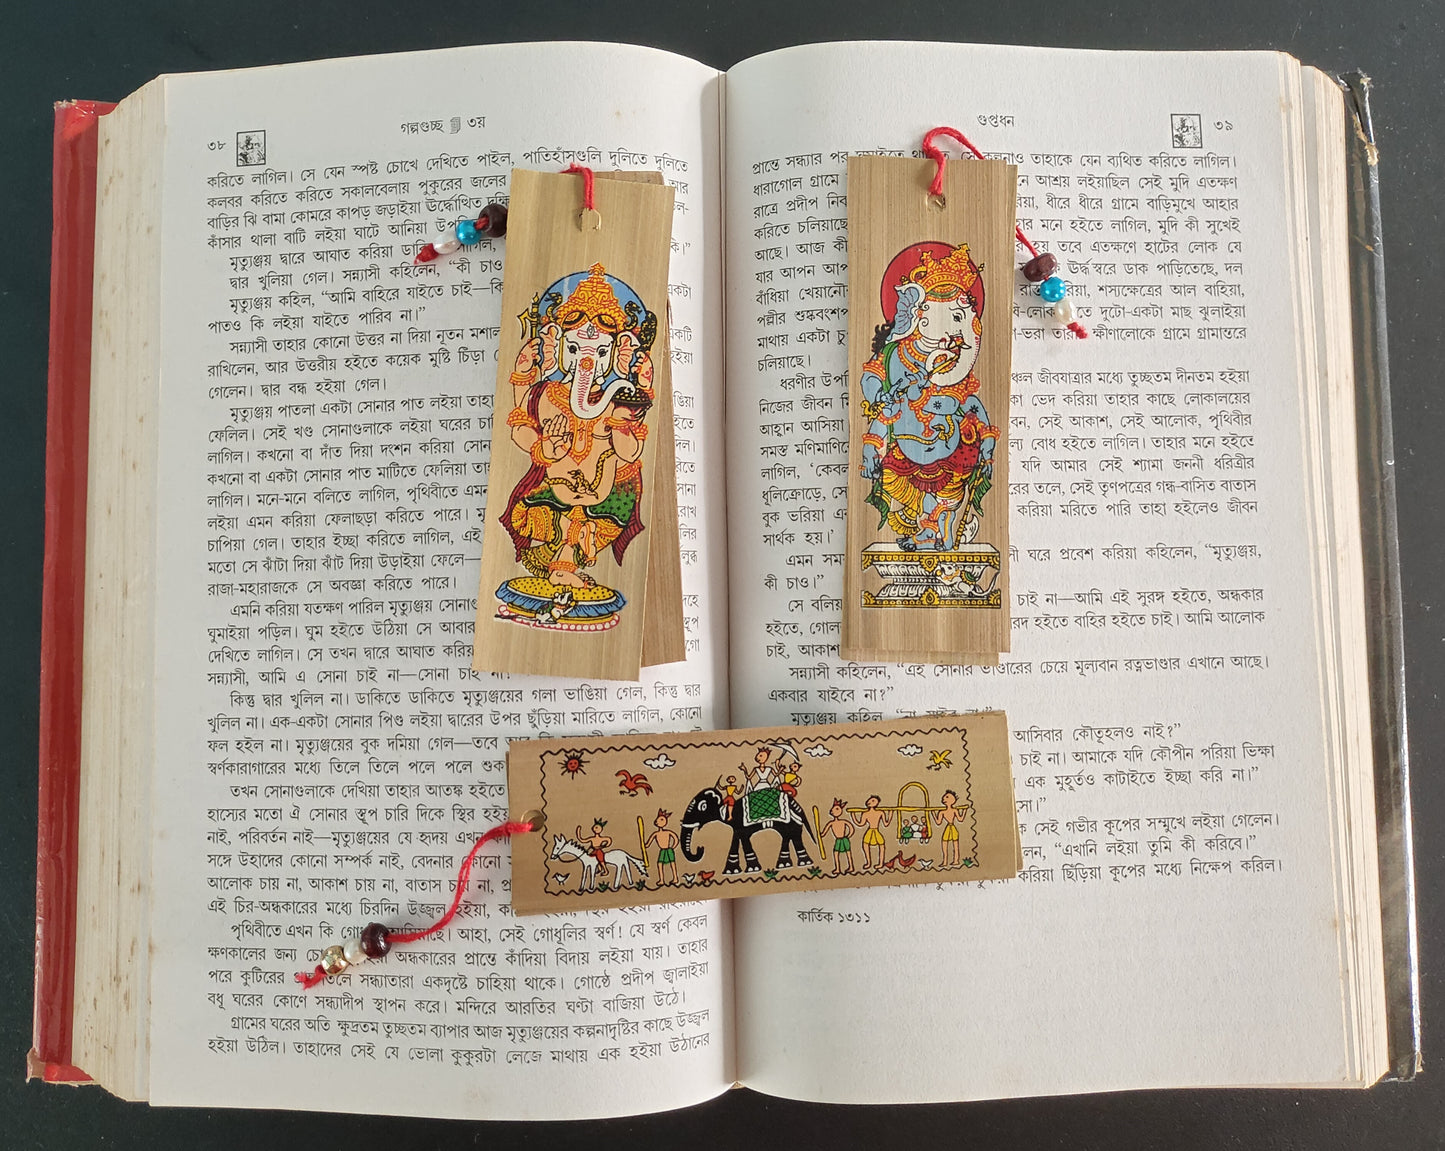 ৩৮
গল্পগুচ্ছ ৩য়
করিতে লাগিল। সে যেন স্পষ্ট চোখে দেখিতে পাইল, পাতিহাঁসগুলি দুলিতে দুলিতে
কলরব করিতে করিতে সকালবেলায় পুকুরের জলের আর
বাড়ির ঝি বামা কোমরে কাপড় জড়াইয়া ঊর্দ্ধোত্থিত
কাঁসার থালা বাটি লইয়া ঘাটে আনিয়া
মৃত্যুঞ্জয় দ্বারে আঘাত করিয়া কি।”
দ্বার খুলিয়া গেল। সন্ন্যাসী কহিলেন, “কী চাও
মৃত্যুঞ্জয় কহিল, “আমি বাহিরে যাইতে চাই— একটা
পাতও কি লইয়া যাইতে পারিব না।”
সন্ন্যাসী তাহার কোনো উত্তর না দিয়া নূতন মশাল একটি
রাখিলেন, আর উত্তরীয় হইতে কয়েক মুষ্টি চিঁড়া হইয়া
গেলেন। দ্বার বন্ধ হইয়া গেল।
মৃত্যুঞ্জয় পাতলা একটা সোনার পাত লইয়া
ফেলিল। সেই খণ্ড সোনাগুলাকে লইয়া ঘরের
লাগিল। কখনো বা দাঁত দিয়া দংশন করিয়া
কখনো বা একটা সোনার পাত মাটিতে ফেলিয়া
লাগিল। মনে-মনে বলিতে লাগিল, পৃথিবীতে সোনা
লইয়া এমন করিয়া ফেলাছড়া করিতে পারে।
চাপিয়া গেল। তাহার ইচ্ছা করিতে লাগিল, এই
মতো সে ঝাঁটা দিয়া ঝাঁট দিয়া উড়াইয়া ফেলে—
রাজা-মহারাজকে সে অবজ্ঞা করিতে পারে।
এমনি করিয়া যতক্ষণ পারিল মৃত্যুঞ্জয়
ঘুমাইয়া পড়িল। ঘুম হইতে উঠিয়া সে আবার
দেখিতে লাগিল। সে তখন দ্বারে আঘাত
সন্ন্যাসী, আমি এ সোনা চাই না—সোনা চাই
কিন্তু দ্বার খুলিল না। ডাকিতে ডাকিতে মৃত্যুঞ্জয়ের গলা ভাঙিয়া গেল, কিন্তু দ্বার
খুলিল না। এক-একটা সোনার পিণ্ড লইয়া দ্বারের উপর ছুঁড়িয়া মারিতে লাগিল, কোনো
ফল হইল না। মৃত্যুঞ্জয়ের বুক দমিয়া গেল—তবে
স্বর্ণকারাগারের মধ্যে তিলে তিলে পলে পলে
তখন সোনাগুলাকে দেখিয়া তাহার আতঙ্ক হইতে
হাস্যের মতো ঐ সোনার স্তূপ চারি দিকে স্থির
নাই, পরিবর্তন নাই—মৃত্যুঞ্জয়ের যে হৃদয়
সঙ্গে উহাদের কোনো সম্পর্ক নাই, বেদনার কোনো
আলোক চায় না, আকাশ চায় না, বাতাস চায় না,
এই চির-অন্ধকারের মধ্যে চিরদিন উজ্জ্বল হইয়া,
পৃথিবীতে এখন কি আহা, সেই গোধূলির স্বর্ণ! যে স্বর্ণ কেবল
ক্ষণকালের জন্য অন্ধকারের প্রান্তে কাঁদিয়া বিদায় লইয়া যায়। তাহার
পরে কুটিরের সন্ধ্যাতারা একদৃষ্টে চাহিয়া থাকে। গোষ্ঠে প্রদীপ জ্বালাইয়া
বধূ ঘরের কোণে সন্ধ্যাদীপ স্থাপন করে। মন্দিরে আরতির ঘণ্টা বাজিয়া উঠে।
গ্রামের ঘরের অতি ক্ষুদ্রতম তুচ্ছতম ব্যাপার আজ মৃত্যুঞ্জয়ের কল্পনাদৃষ্টির কাছে উজ্জ্বল
হইয়া উঠিল। তাহাদের সেই যে ভোলা কুকুরটা লেজে মাথায় এক হইয়া উঠানের
গুপ্তধন
৩৯
প্রান্তে সন্ধ্যার পর তাহাকে যেন ব্যথিত করিতে লাগিল।
ধারাগোল গ্রামে আশ্রয় লইয়াছিল সেই মুদি এতক্ষণ
রাত্রে প্রদীপ ধীরে ধীরে গ্রামে বাড়িমুখে আহার
করিতে চলিয়াছে মনে হইতে লাগিল, মুদি কী সুখেই
আছে। আজ কী হয় তবে এতক্ষণে হাটের লোক যে
যার আপন ঊর্দ্ধস্বরে ডাক পাড়িতেছে, দল
বাঁধিয়া শস্যক্ষেত্রের আল বাহিয়া,
পল্লীর দুটো-একটা মাছ ঝুলাইয়া
মাথায় একটা ক্ষীণালোকে গ্রামে গ্রামান্তরে
চলিয়াছে।
ধরণীর জীবযাত্রার মধ্যে তুচ্ছতম দীনতম হইয়া
নিজের জীবন ভেদ করিয়া তাহার কাছে লোকালয়ের
আহ্বান আসিয়া সেই আকাশ, সেই আলোক, পৃথিবীর
সমস্ত বোধ হইতে লাগিল। তাহার মনে হইতে
লাগিল, যদি আমার সেই শ্যামা জননী ধরিত্রীর
ধূলিক্রোড়ে, তলে, সেই তৃণপত্রের গন্ধ-বাসিত বাতাস
বুক ভরিয়া করিয়া মরিতে পারি তাহা হইলেও জীবন
সার্থক হয়।’
এমন ঘরে প্রবেশ করিয়া কহিলেন, “মৃত্যুঞ্জয়,
কী চাও।”
সে চাই না—আমি এই সুরঙ্গ হইতে, অন্ধকার
হইতে, হইতে বাহির হইতে চাই। আমি আলোক
চাই,
সন্ন্যাসী কহিলেন, “এই সোনার ভাণ্ডারের চেয়ে মূল্যবান রত্নভাণ্ডার এখানে আছে।
একবার যাইবে না?”
মৃত্যুঞ্জয় কহিল,
আসিবার কৌতূহলও নাই?”
চাই না। আমাকে যদি কৌপীন পরিয়া ভিক্ষা
এক মুহূর্তও কাটাইতে ইচ্ছা করি না।”
সেই গভীর কূপের সম্মুখে লইয়া গেলেন।
“এখানি লইয়া তুমি কী করিবে।”
করিয়া ছিঁড়িয়া কূপের মধ্যে নিক্ষেপ করিল।
কার্তিক ১৩১১